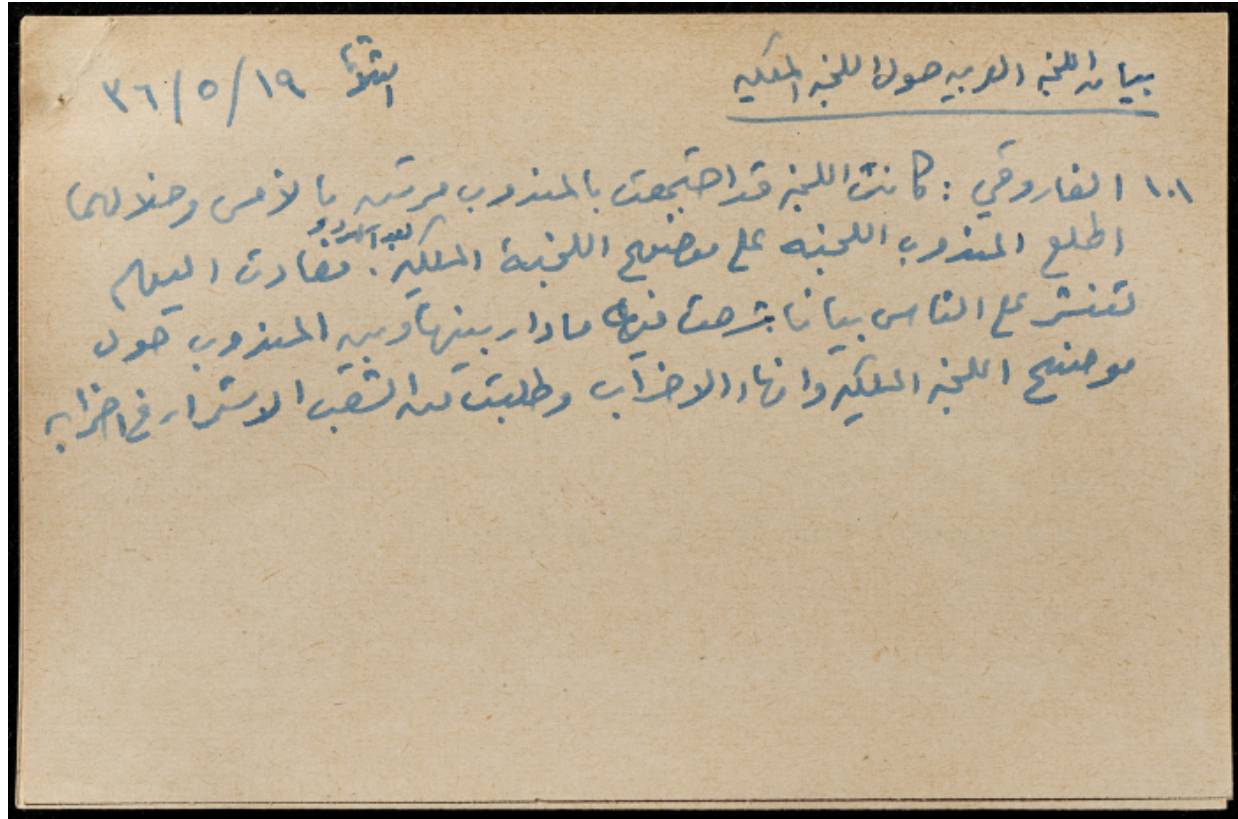 بيان اللجنه العربيه حول اللجنه الملكيه
الثلاثا ١٩/٥/٣٦
١٠١ الفاروقي : كانت اللجنه قد اجتمعت بالمندوب مرتين بالأمس وخلالهما
اطلع المندوب اللجنه على موضوع اللجنة الملكيه . فعادت اليوم
تنشر على الناس بيانا شرحت فيه ما دار بينها وبين المندوب حول
موضوع اللجنه الملكيه وانهاء الاضراب وطلبت من الشعب الاستمرار في اضرابه